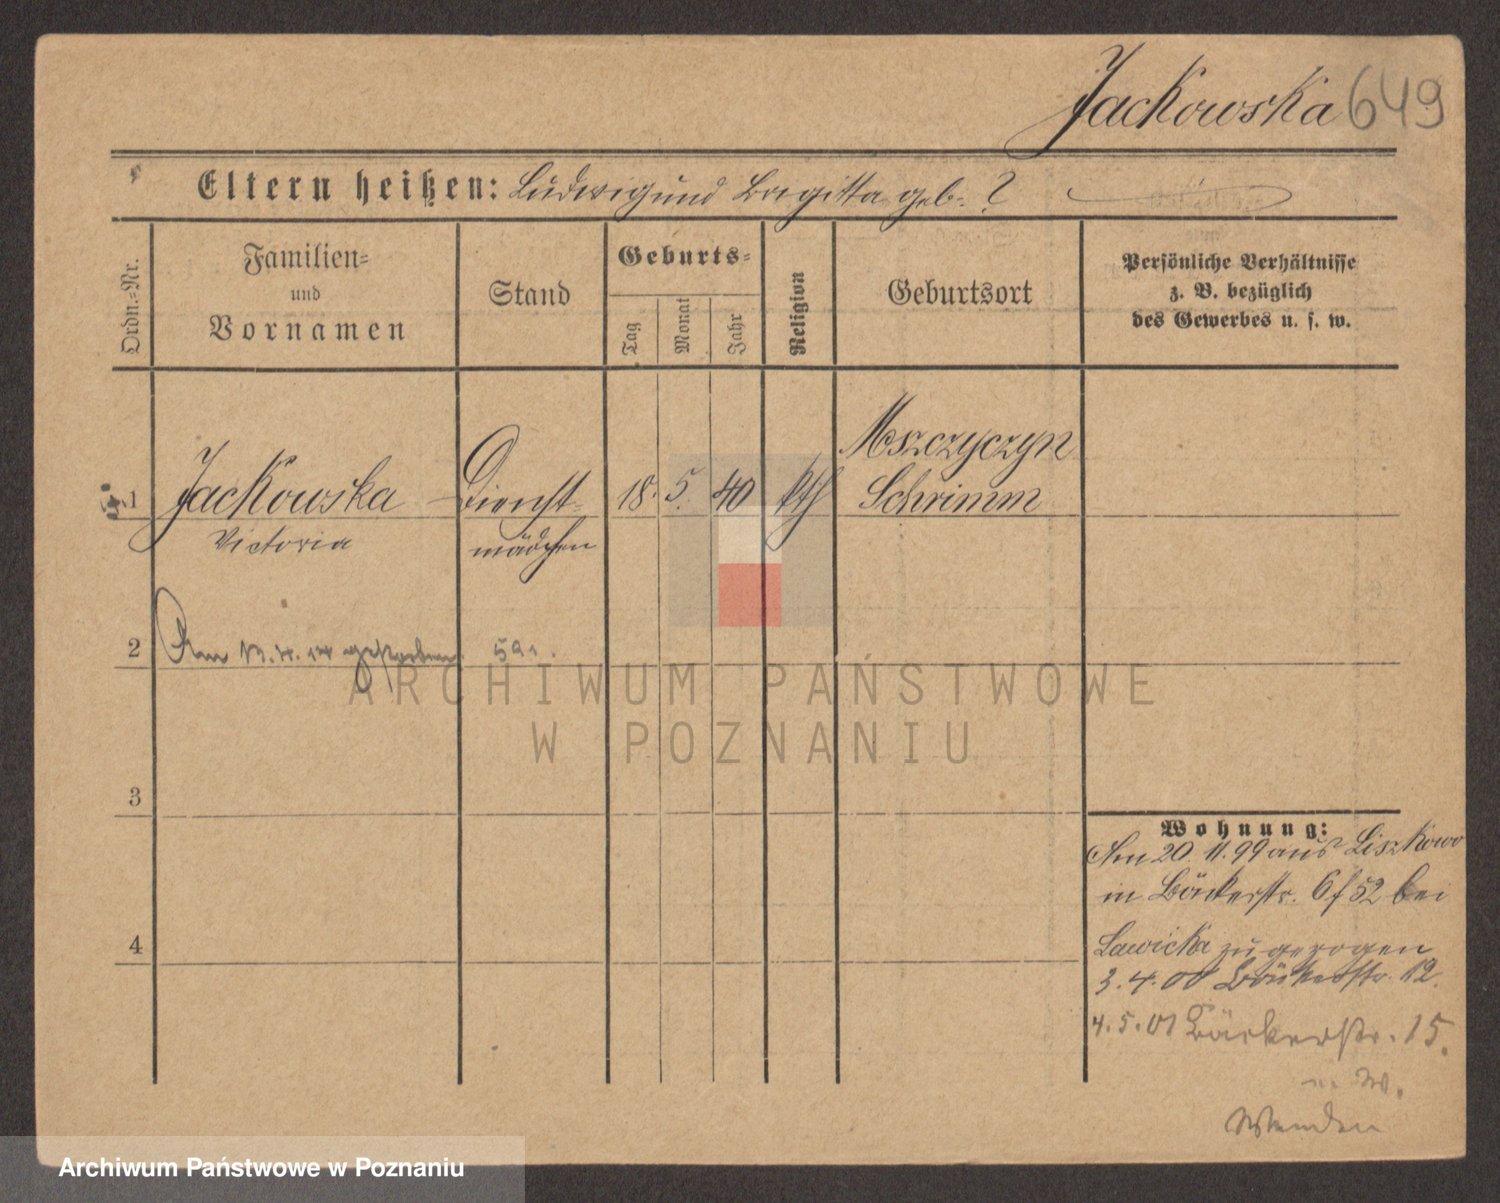 Jackowska 649
Eltern heißen: Ludwig und Brigitta geb. ?
Ordn.=Nr.
Familien=
und
Vornamen
Stand
Geburts=
Tag
Monat
Jahr
Religion
Geburtsort
Persönliche Verhältnisse
z. B. bezüglich
des Gewerbes u. s. w.
1
Jackowska
Victoria
Dienst=
mädchen
18. 5. 40
kth
Mszczyczyn
Schrimm
2
Am gestorben
3
4
Wohnung:
Am 20. 11. 99 aus Liszkowo
in Bäckerstr. 6 f 52 bei
Lawicka zugezogen
3. 4. 00 Bäckerstr. 12.
4. 5. 01 Bäckerstr. 15.
ARCHIWUM PAŃSTWOWE
W POZNANIU
Archiwum Państwowe w Poznaniu